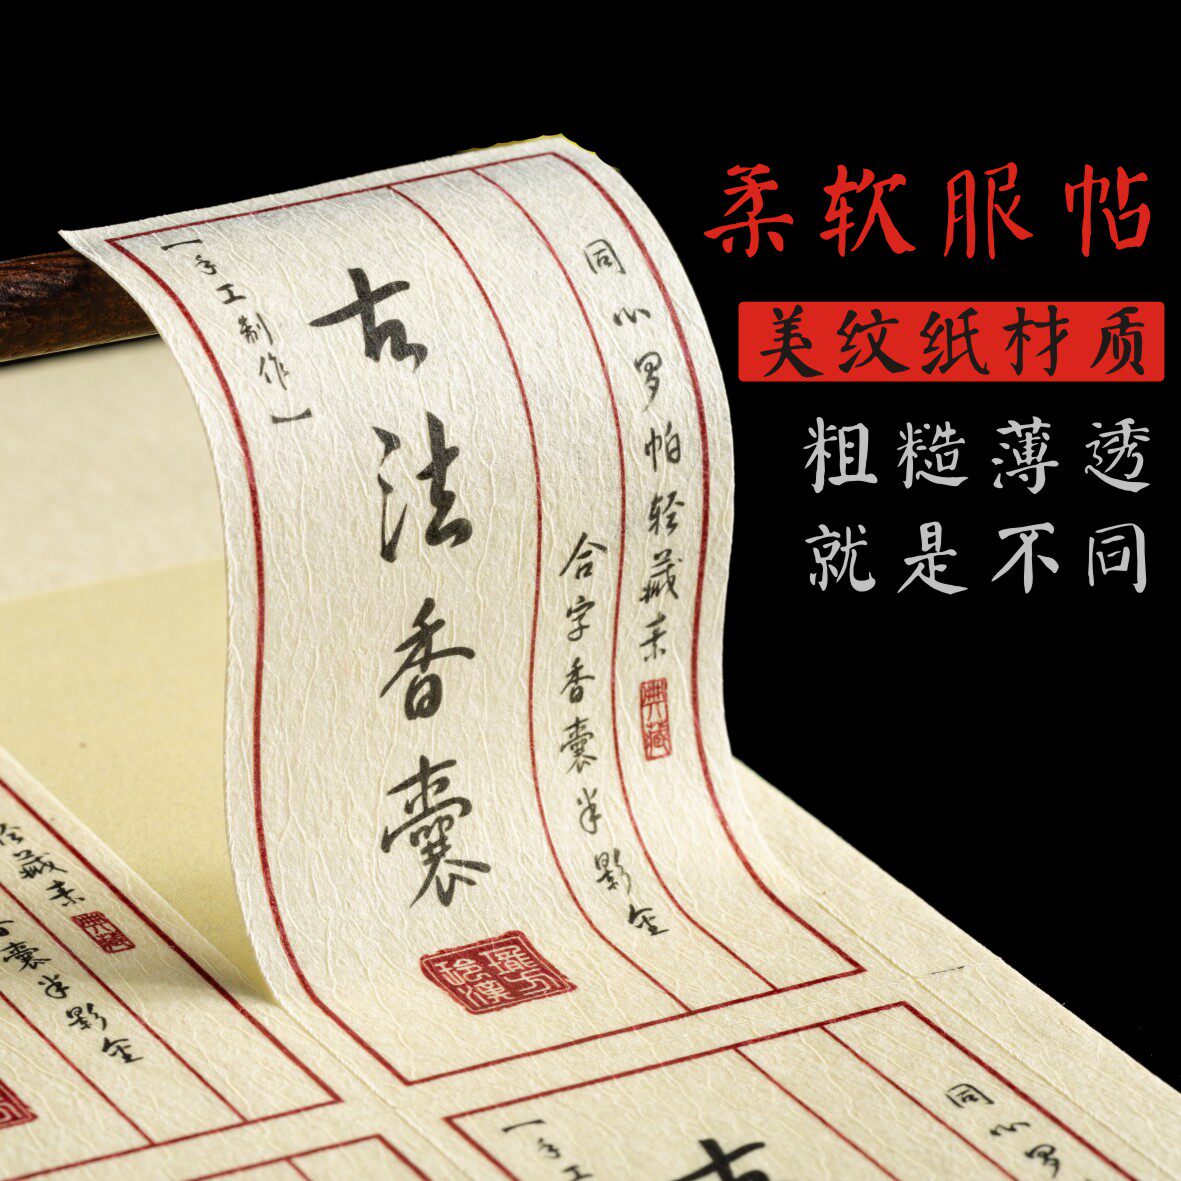 柔软服帖
美纹纸材质
粗糙薄透
就是不同
同心罗帕轻藏素
典藏
合字香囊半影金
古法香囊
【手工制作】
轻藏素
典藏
香囊半影金
同心罗
【手工
古